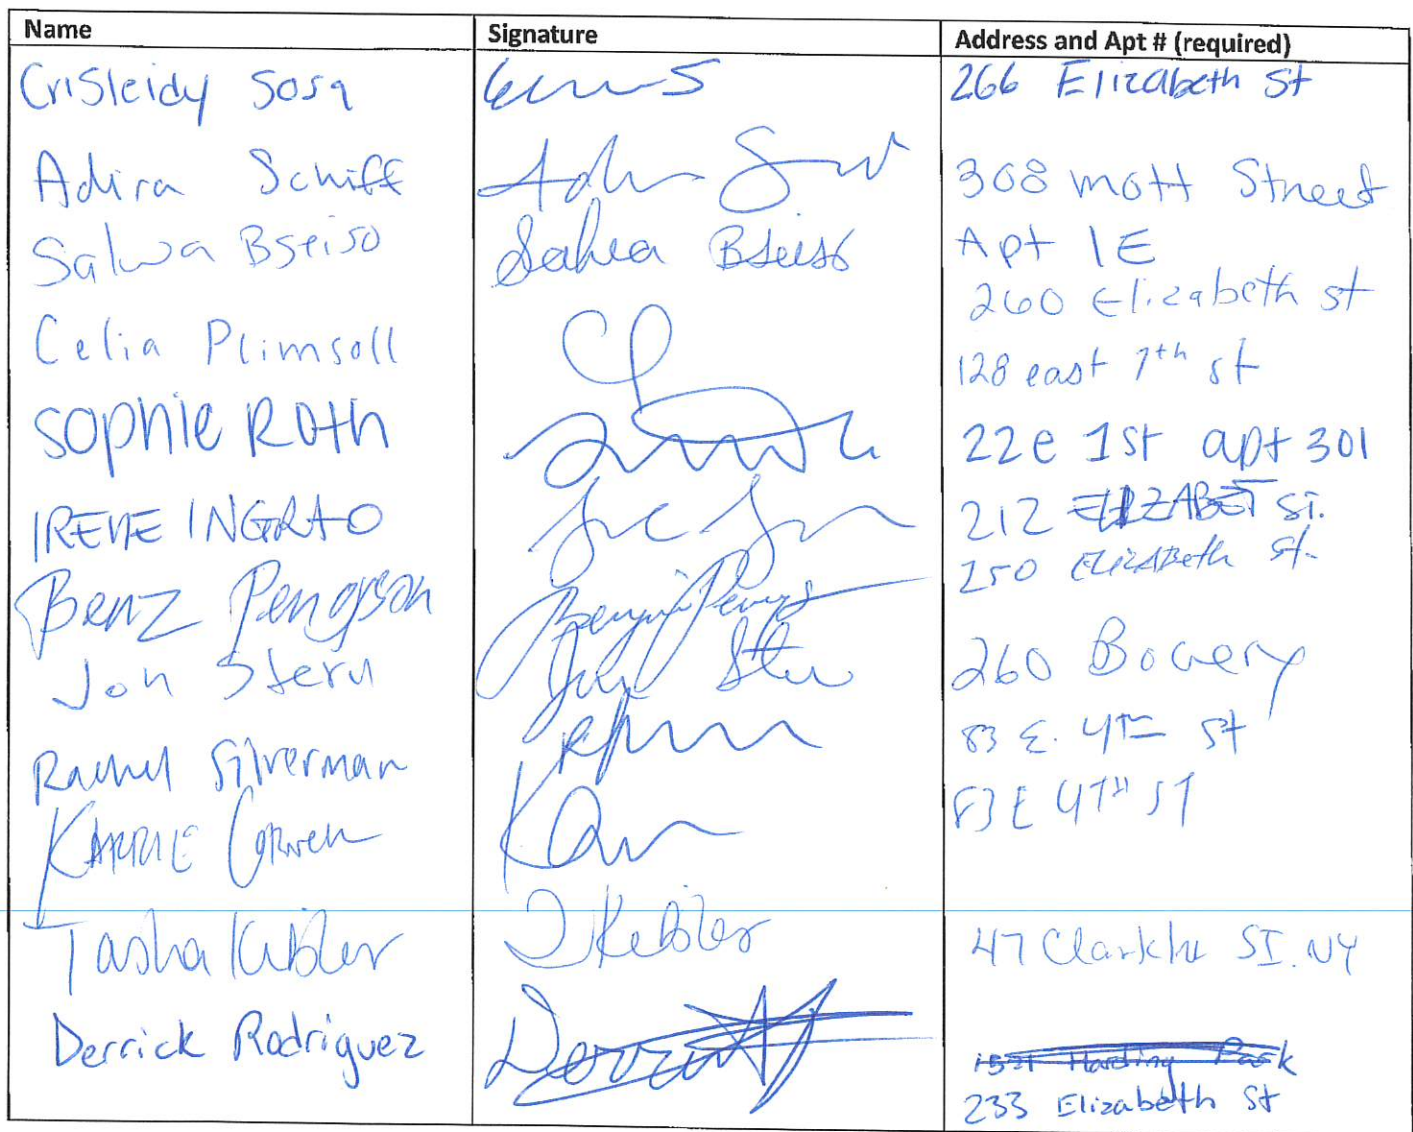 Name Signature Address and Apt # (required)
Crisleidy Sosa 266 Elizabeth St
Adira Schiff 308 Mott Street
Apt 1E
Salwa Bseiso Salwa Bseiso 260 Elizabeth st
Celia Plimsoll 128 east 7th st
Sophie Roth 22e 1st apt 301
IRENE INGRAO 212 ELIZABET ST.
Benz Pengson 250 Elizabeth St.
Jon Stern Jon Stern 260 Bowery
Rachel Silverman 83 E. 4TH St
KARRIE 83 E 4TH ST
Tasha Kebler T Kebler 47 SI. NY
Derrick Rodriguez Harding Park
233 Elizabeth St